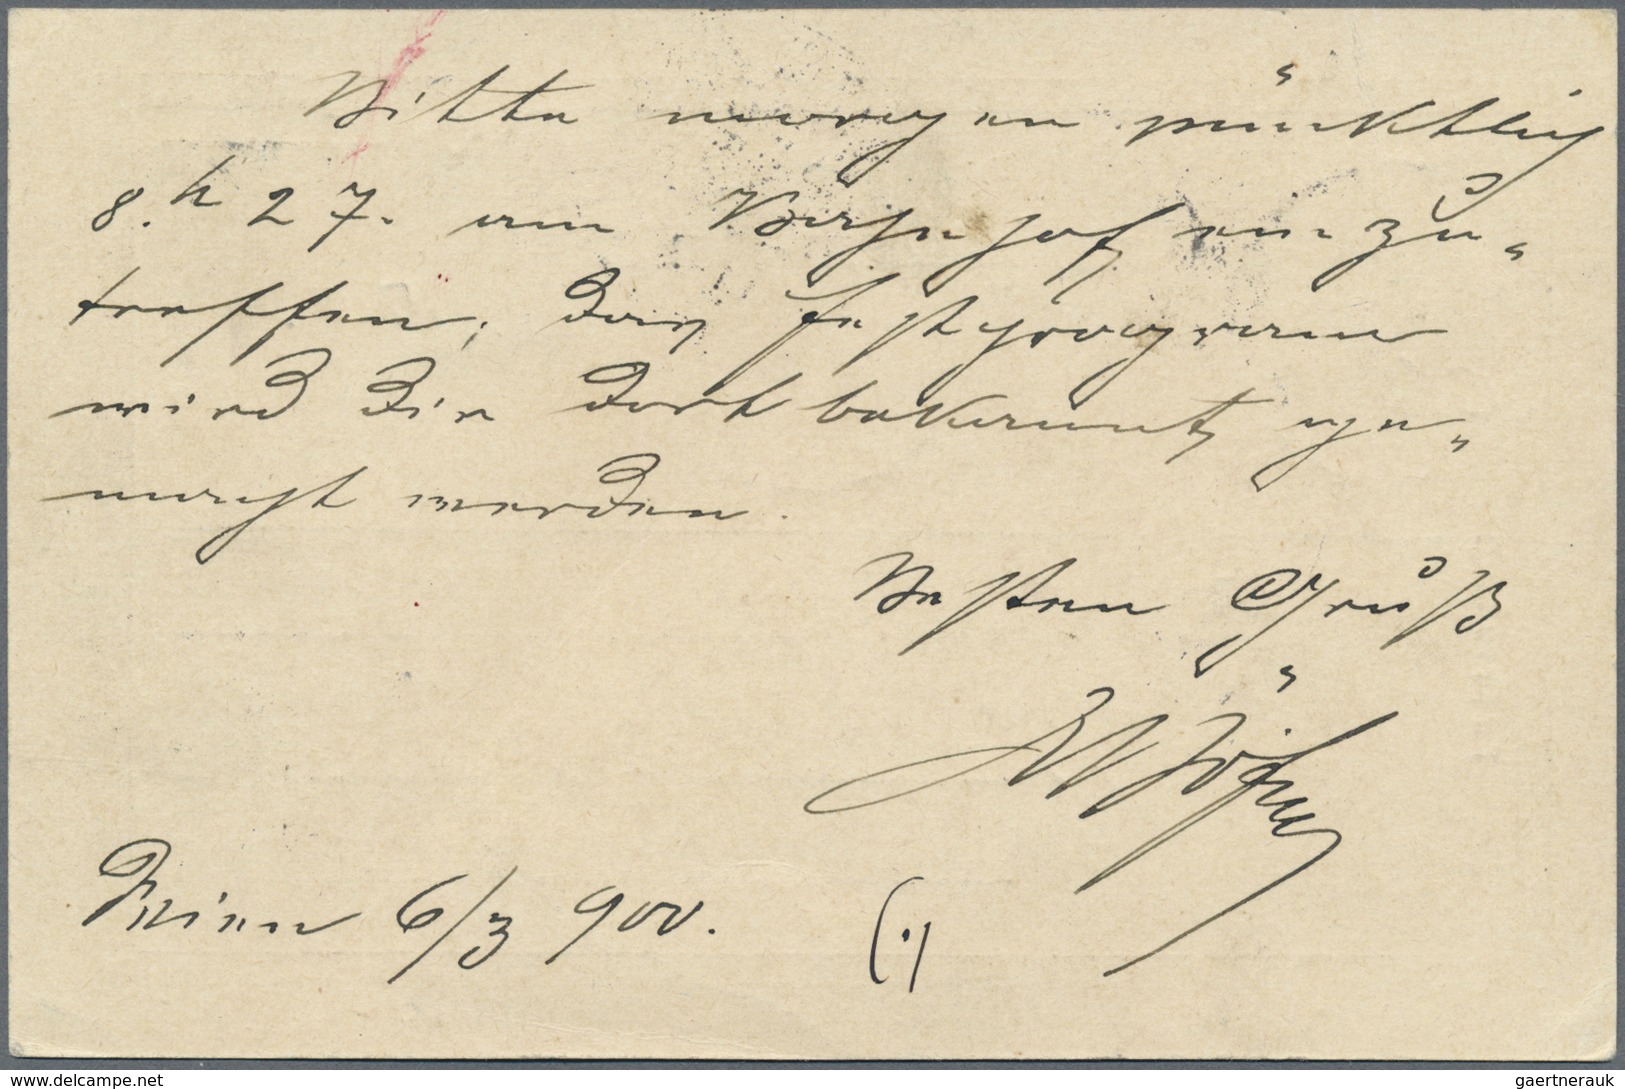 Bitte morgen pünktlich
8.h 27. am Bahnhof einzu„
treffen, das Festprogramm
wird Dir dort bekannt ge„
macht werden.
Besten Gruß
Wien 6/3 900.
www.delcampe.net
gaertnerauk